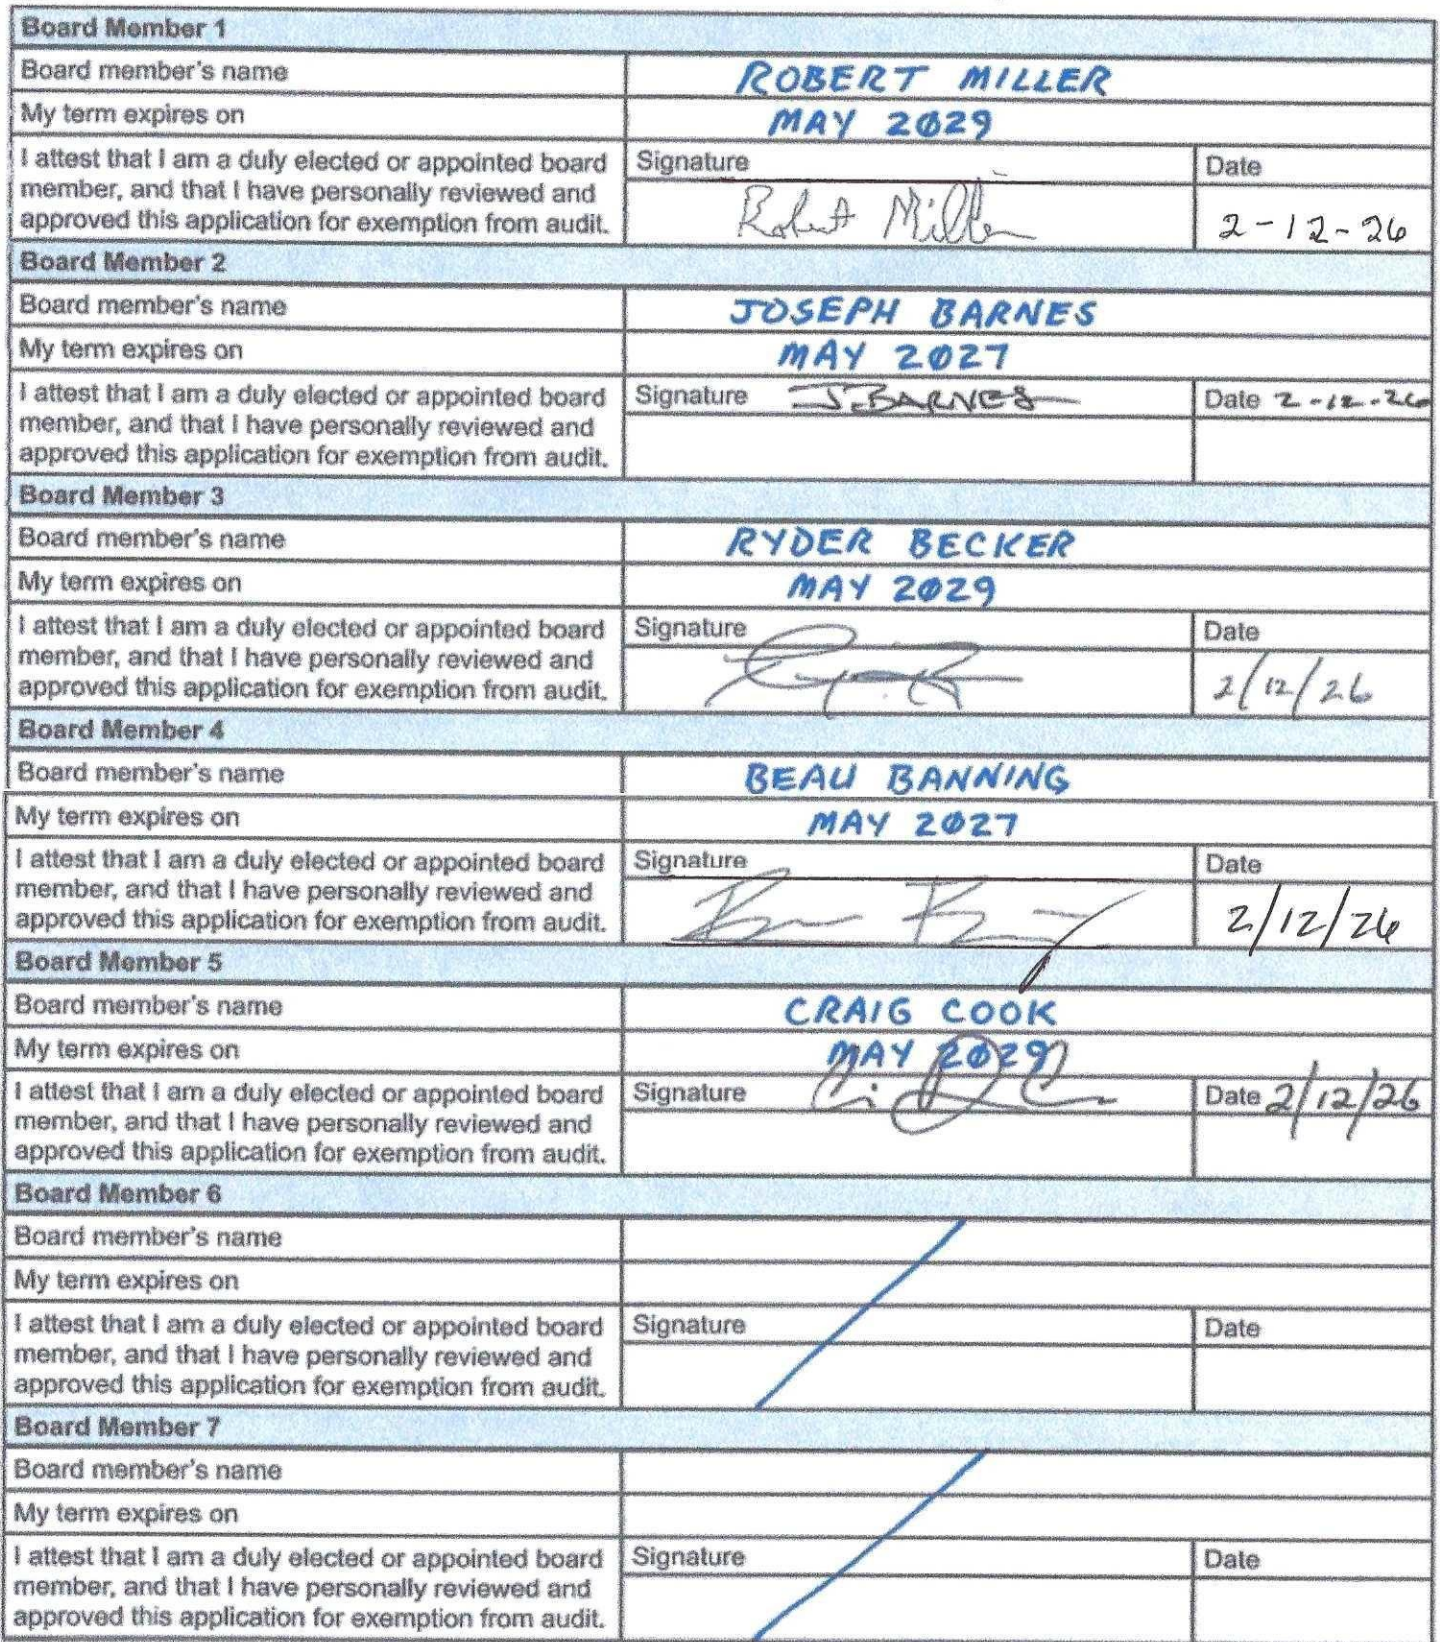 Board Member 1
Board member's name ROBERT MILLER
My term expires on MAY 2029
I attest that I am a duly elected or appointed board Signature Date
member, and that I have personally reviewed and
approved this application for exemption from audit. Robert Miller 2-12-26
Board Member 2
Board member's name JOSEPH BARNES
My term expires on MAY 2027
I attest that I am a duly elected or appointed board Signature J. BARNES Date 2-12-26
member, and that I have personally reviewed and
approved this application for exemption from audit.
Board Member 3
Board member's name RYDER BECKER
My term expires on MAY 2029
I attest that I am a duly elected or appointed board Signature Date
member, and that I have personally reviewed and
approved this application for exemption from audit. 2/12/26
Board Member 4
Board member's name BEAU BANNING
My term expires on MAY 2027
I attest that I am a duly elected or appointed board Signature Date
member, and that I have personally reviewed and
approved this application for exemption from audit. 2/12/26
Board Member 5
Board member's name CRAIG COOK
My term expires on MAY 2029
I attest that I am a duly elected or appointed board Signature Date 2/12/26
member, and that I have personally reviewed and
approved this application for exemption from audit.
Board Member 6
Board member's name
My term expires on
I attest that I am a duly elected or appointed board Signature Date
member, and that I have personally reviewed and
approved this application for exemption from audit.
Board Member 7
Board member's name
My term expires on
I attest that I am a duly elected or appointed board Signature Date
member, and that I have personally reviewed and
approved this application for exemption from audit.